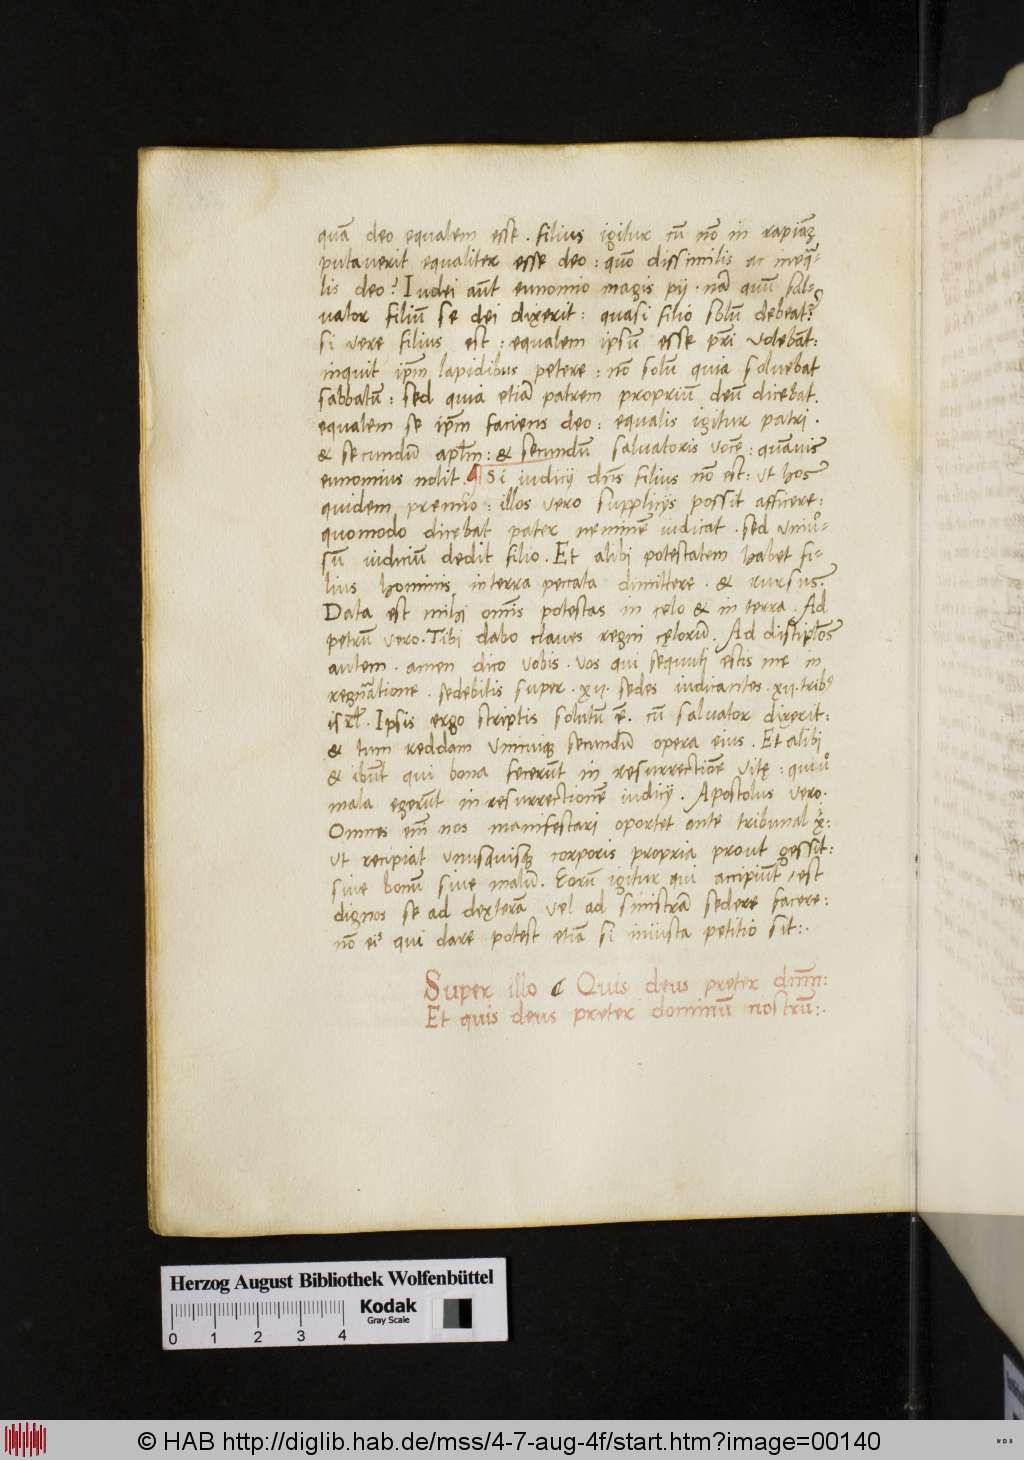 quā deo equalem esse . filius igitur cū nō in rapinā
putaverit equaliter esse deo : quō dissimilis ac inequa-
lis deo? Iudei aūt eunomio magis pij . nā quū sal-
vator filiū se dei dixerit : quasi filio solū debeat?
si vere filius est : equalem ipsū esse pr̄i volebāt :
inquit ip̄m lapidibus petere : nō solū quia soluebat
sabbatū : sed quia etiā patrem propriū deū dicebat.
equalem se ip̄m faciens deo : equalis igitur patri .
& secundū apl̄m : & secundū salvatoris vocē : quāvis
eunomius nolit . Si iudicij dn̄s filius nō est : ut hos
quidem premio : illos vero supplicijs possit afficere :
quomodo dicebat pater neminē iudicat . sed univer-
sū iudiciū dedit filio . Et alibi potestatem habet fi-
lius hominis in terra peccata dimittere . & rursus.
Data est mihi om̄is potestas in celo & in terra . Ad
petrū vero . Tibi dabo claves regni cęlorū . Ad discip̄los
autem . amen dico vobis . vos qui sequuti estis me in
regn̄atione . sedebitis super . xij . sedes iudicantes . xij . tribꝰ
isrl̄ . Ipsis ergo scriptis solutū ē . cū salvator dixerit :
& tum reddam unicuiqꝫ secundū opera eius . Et alibi
& ibūt qui bona fecerūt in resurrectionē vitę : qui v̊
mala egerūt in resurrectionē iudicij . Apostolus vero .
Omnes em̄ nos manifestari oportet ante tribunal x̄ :
ut recipiat unusquisqꝫ corporis propria prout gessit :
sive bonū sive malū . Eorū igitur qui accipiūt / est
dignos se ad dexterā vel ad sinistrā sedere facere :
nō eiꝰ qui dare potest etiā si iniusta petitio sit :.
Super illo Quis deus preter dn̄m :
Et quis deus preter dominū nostrū :.
Herzog August Bibliothek Wolfenbüttel
Kodak
Gray Scale
0 1 2 3 4
© HAB http://diglib.hab.de/mss/4-7-aug-4f/start.htm?image=00140